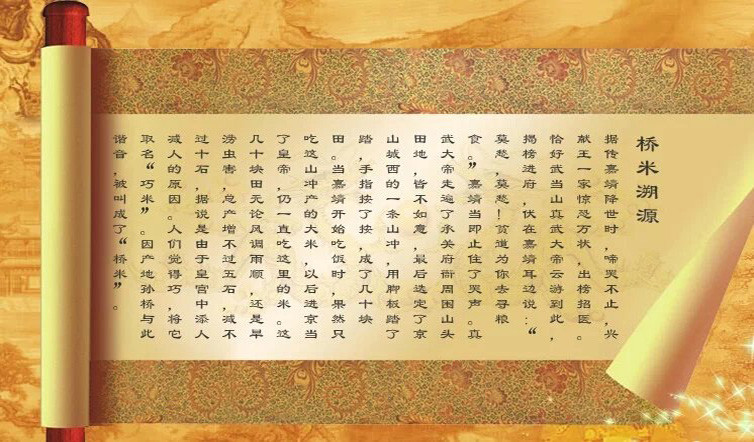 桥米溯源
据传嘉靖降世时，啼哭不止，兴
献王一家惊恐万状，出榜招医。
恰好武当山真武大帝云游到此，
揭榜进府，伏在嘉靖耳边说：“
莫愁，莫愁！贫道为你去寻粮
食。”嘉靖当即止住了哭声。真
武大帝走遍了承天府衙周围山头
田地，皆不如意，最后选定了京
山城西的一条山冲，用脚板踏了
踏，手指按了按，成了几十块
田。当嘉靖开始吃饭时，果然只
吃这山冲产的大米，以后进京当
了皇帝，仍一直吃这里的米。这
几十块田无论风调雨顺，还是旱
涝虫害，总产增不过五石，减不
过十石，据说是由于皇宫中添人
减人的原因。人们觉得巧，将它
取名“巧米”。因产地孙桥与此
谐音，被叫成了“桥米”。